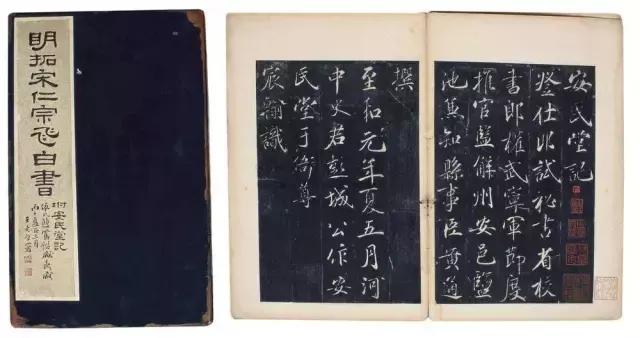 明拓宋仁宗飞白書
附安民堂記
安民堂記
登仕郎試秘書省校
書郎權武寧軍節度
推官監解州安邑鹽
池兼知縣事臣黃通
撰
至和元年夏五月河
中史君彭城公作安
民堂于衙尊
宸翰識